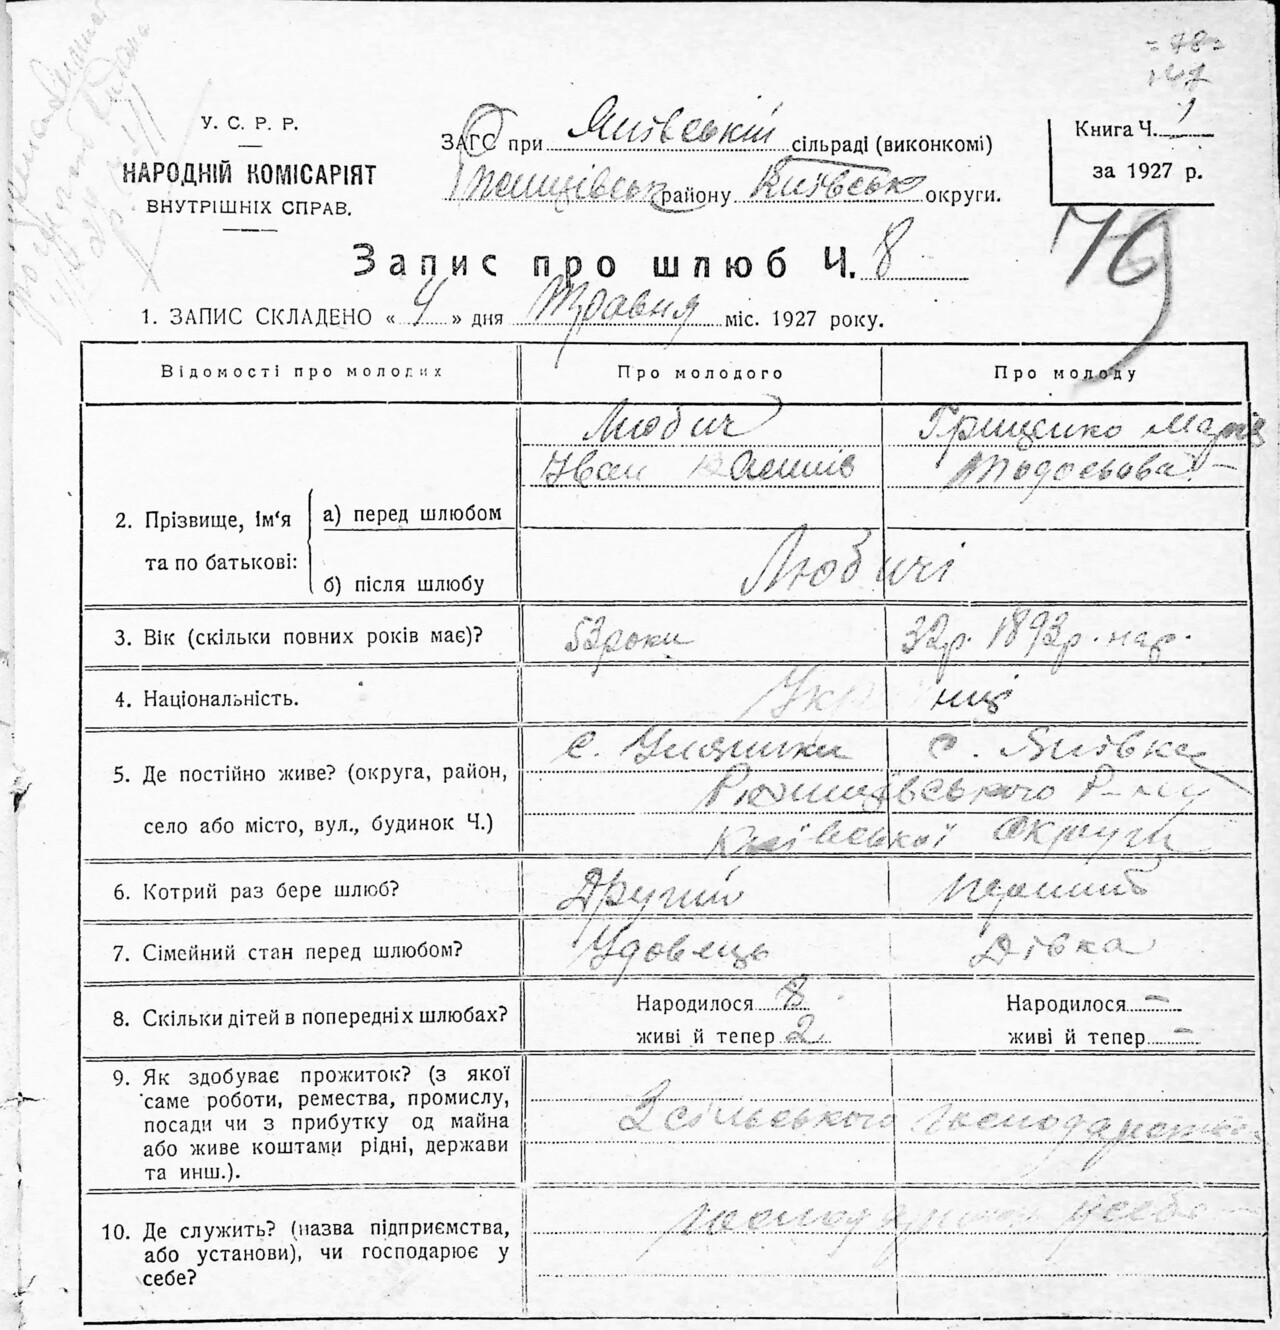 У. С. Р. Р.
НАРОДНІЙ КОМІСАРІЯТ
ВНУТРІШНІХ СПРАВ.
ЗАГС при Янівській сільраді (виконкомі)
району Київськ округи.
Книга Ч. 1
за 1927 р.
= 78 =
79
Запис про шлюб Ч. 8
1. ЗАПИС СКЛАДЕНО « 4 » дня Травня міс. 1927 року.
Відомості про молодих Про молодого Про молоду
Любич Грищенко Марія
Іван Тодосьова
2. Прізвище, ім'я та по батькові: а) перед шлюбом
б) після шлюбу Любичі
3. Вік (скільки повних років має)? 53 роки 32 р. 1893 р. нар.
4. Національність. Українці
5. Де постійно живе? (округа, район, с. с. Янівка
село або місто, вул., будинок Ч.) Р-ну
Київської Округи
6. Котрий раз бере шлюб? Другий Перший
7. Сімейний стан перед шлюбом? Удовець Дівка
8. Скільки дітей в попередніх шлюбах? Народилося 8 Народилося –
живі й тепер 2 живі й тепер –
9. Як здобуває прожиток? (з якої
саме роботи, ремества, промислу,
посади чи з прибутку од майна З сільського господарства
або живе коштами рідні, держави
та инш.).
10. Де служить? (назва підприємства,
або установи), чи господарює у
себе?